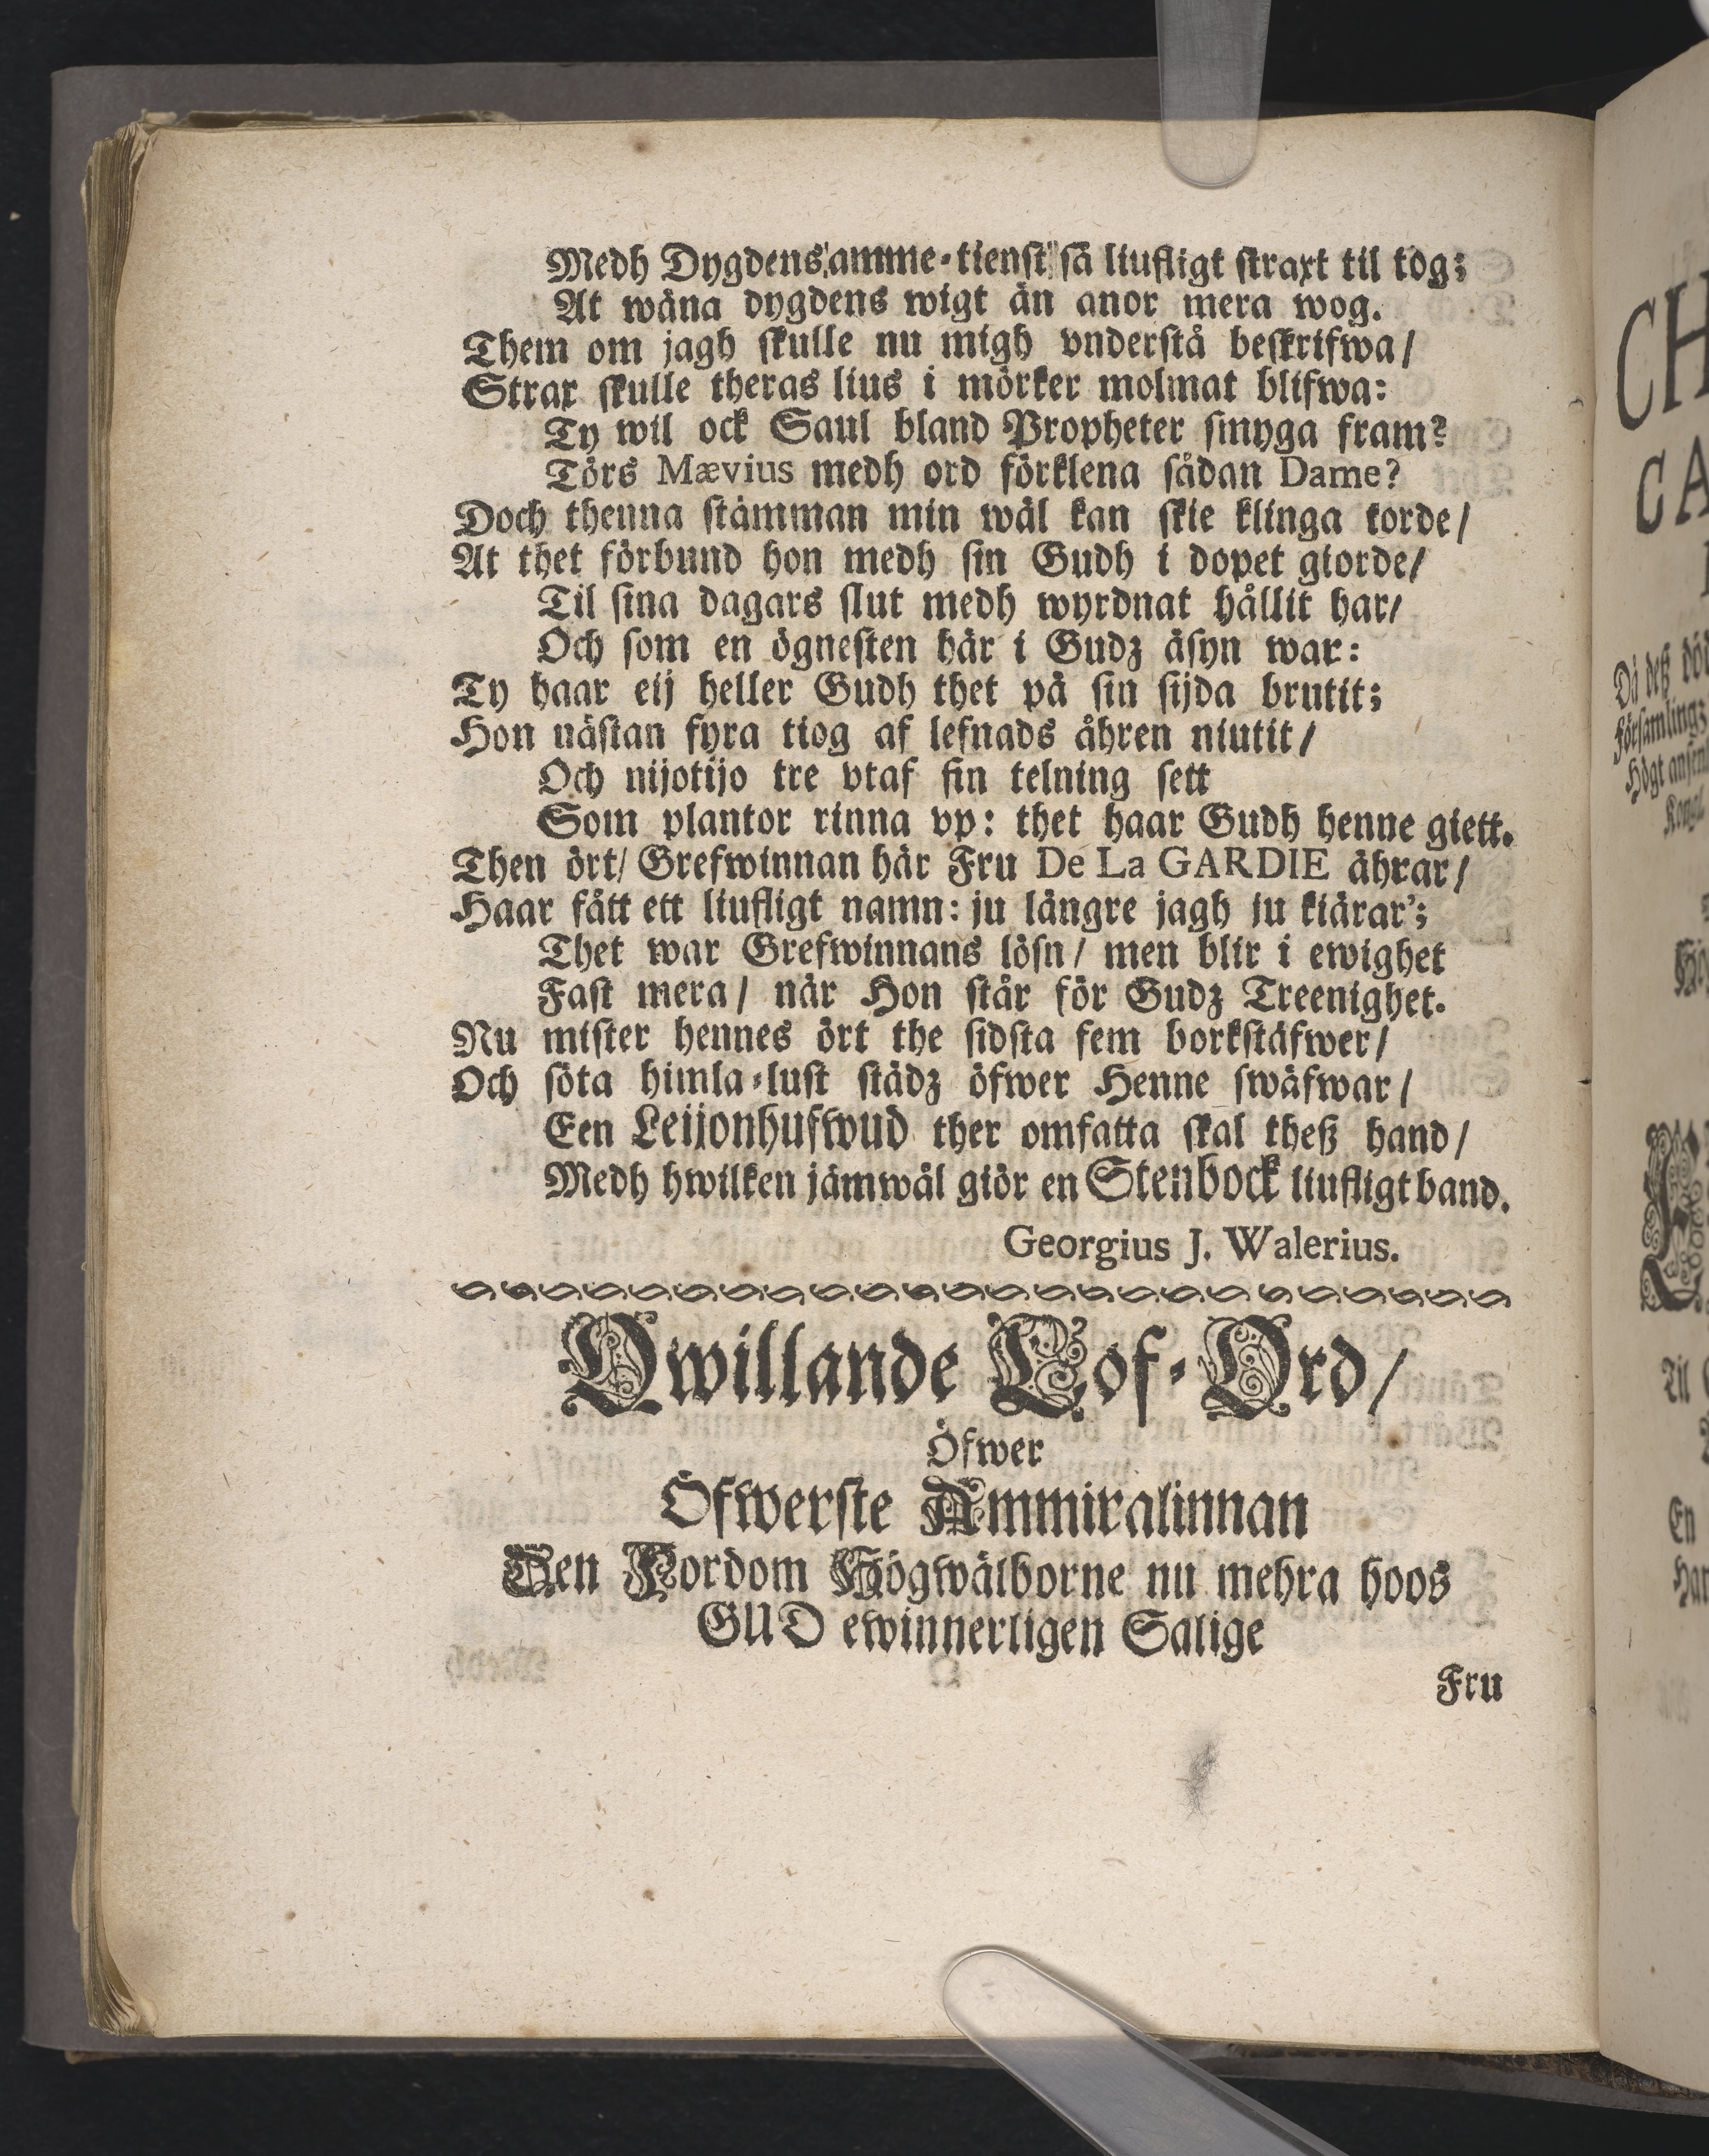 Medh Dygdens amme-tienst så liufligt straxt til tog;
At wåna dygdens wigt än anor mera wog.
Them om jagh skulle nu migh vnderstå beskrifwa/
Strax skulle theras lius i mörker molmat blifwa:
Ty wil ock Saul bland Propheter smyga fram?
Törs Mævius medh ord förklena sådan Dame?
Doch thenna stämman min wäl kan skie klinga torde/
At thet förbund hon medh sin Gudh i dopet giorde/
Til sina dagars slut medh wyrdnat hållit har/
Och som en ögnesten här i Gudz åsyn war:
Ty haar eij heller Gudh thet på sin sijda brutit;
Hon nästan fyra tiog af lefnads åhren niutit/
Och nijotijo tre vtaf sin telning sett
Som plantor rinna vp: thet haar Gudh henne giett.
Then ört/ Grefwinnan här Fru De La GARDIE ährar/
Haar fått ett liufligt namn: ju längre jagh ju kiärar';
Thet war Grefwinnans lösn/ men blir i ewighet
Fast mera/ när Hon står för Gudz Treenighet.
Nu mister hennes ört the sidsta fem borkstäfwer/
Och söta himla-lust städz öfwer Henne swäfwar/
Een Leijonhufwud ther omfatta skal theß hand/
Medh hwilken jämwäl giör en Stenbock liufligt band.
Georgius J. Walerius.
Qwillande Lof-Ord/
Öfwer
Öfwerste Ammiralinnan
Den Fordom Högwälborne nu mehra hoos
GUD ewinnerligen Salige
Fru